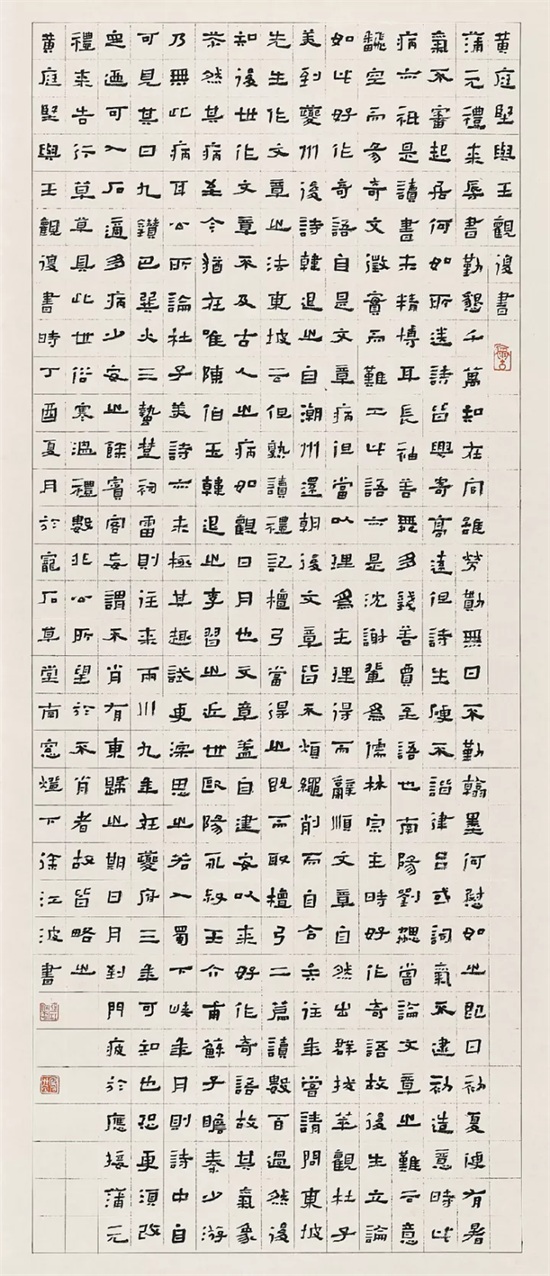 黃庭堅與王觀復書
蒲元禮來辱書勤懇千萬知在同雖勞勩無日不勤翰墨何慰如之即日初夏便有暑
氣不審起居何如所送詩皆興寄高遠但詩生硬不諧律呂或詞氣不逮初造意時此
病亦祗是讀書未精博耳長袖善舞多錢善賈至語也南陽劉勰嘗論文章之難云意
翻空而易奇文徵實而難工此語亦是沈謝輩為儒林宗主時好作奇語故後生立論
如此好作奇語自是文章病但當以理為主理得而辭順文章自然出群拔萃觀杜子
美到夔州後詩韓退之自潮州還朝後文章皆不煩繩削而自合矣往年嘗請問東坡
先生作文章之法東坡云但熟讀禮記檀弓當得之既而取檀弓二篇讀數百過然後
知後世作文章不及古人之病如觀日月也文章蓋自建安以來好作奇語故其氣象
苶然其病至今猶在唯陳伯玉韓退之李習之近世歐陽永叔王介甫蘇子瞻秦少游
乃無此病耳公所論杜子美詩亦未極其趣試更深思之若入蜀下峽年月則詩中自
可見其曰九鑽巴巽火三蟄楚祠雷則往來兩川九年在夔府三年可知也恐更須改
定迺可入石適多病少安之餘賓客妄謂不肖有東歸之期日月到門疲於應接蒲元
禮來告行草草具此世俗寒溫禮數非公所望於不肖者故皆略之
黃庭堅與王觀復書時丁酉夏月於寵石草堂南窗燈下徐江波書